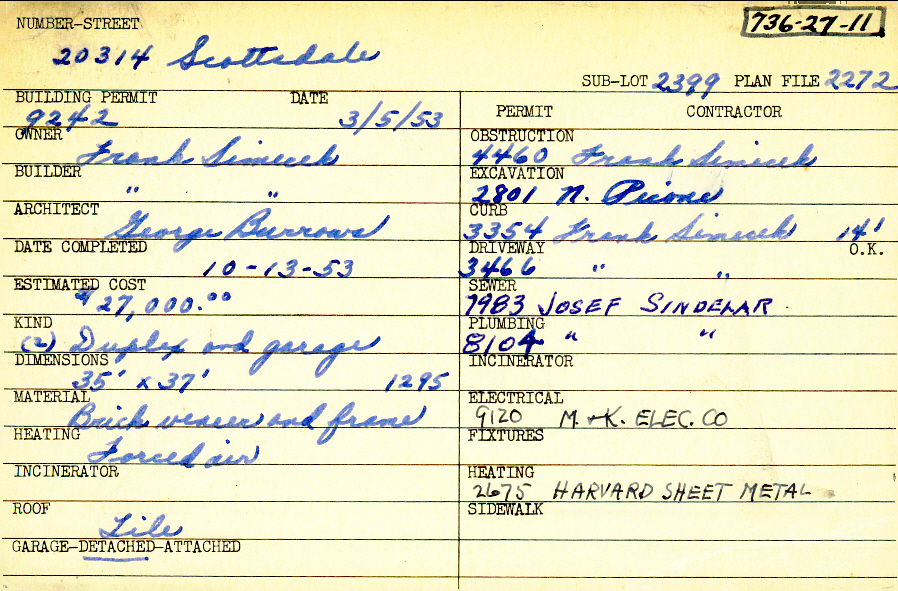 NUMBER-STREET
736-27-11
20314 Scottsdale
SUB-LOT 2399 PLAN FILE 2272
BUILDING PERMIT DATE
9242 3/5/53
OWNER
Frank Simecek
BUILDER
" "
ARCHITECT
George Burrows
DATE COMPLETED
10-13-53
ESTIMATED COST
$27,000.00
KIND
(2) Duplex and garage
DIMENSIONS
35' x 37' 1295
MATERIAL
Brick veneer and frame
HEATING
Forced air
INCINERATOR
ROOF
Tile
GARAGE-DETACHED-ATTACHED
PERMIT CONTRACTOR
OBSTRUCTION
4460 Frank Simecek
EXCAVATION
2801 N. Picone
CURB
3354 Frank Simecek 14'
O.K.
DRIVEWAY
3466 " "
SEWER
7983 JOSEF SINDELAR
PLUMBING
8104 " "
INCINERATOR
ELECTRICAL
9120 M. & K. ELEC. CO
FIXTURES
HEATING
2675 HARVARD SHEET METAL
SIDEWALK